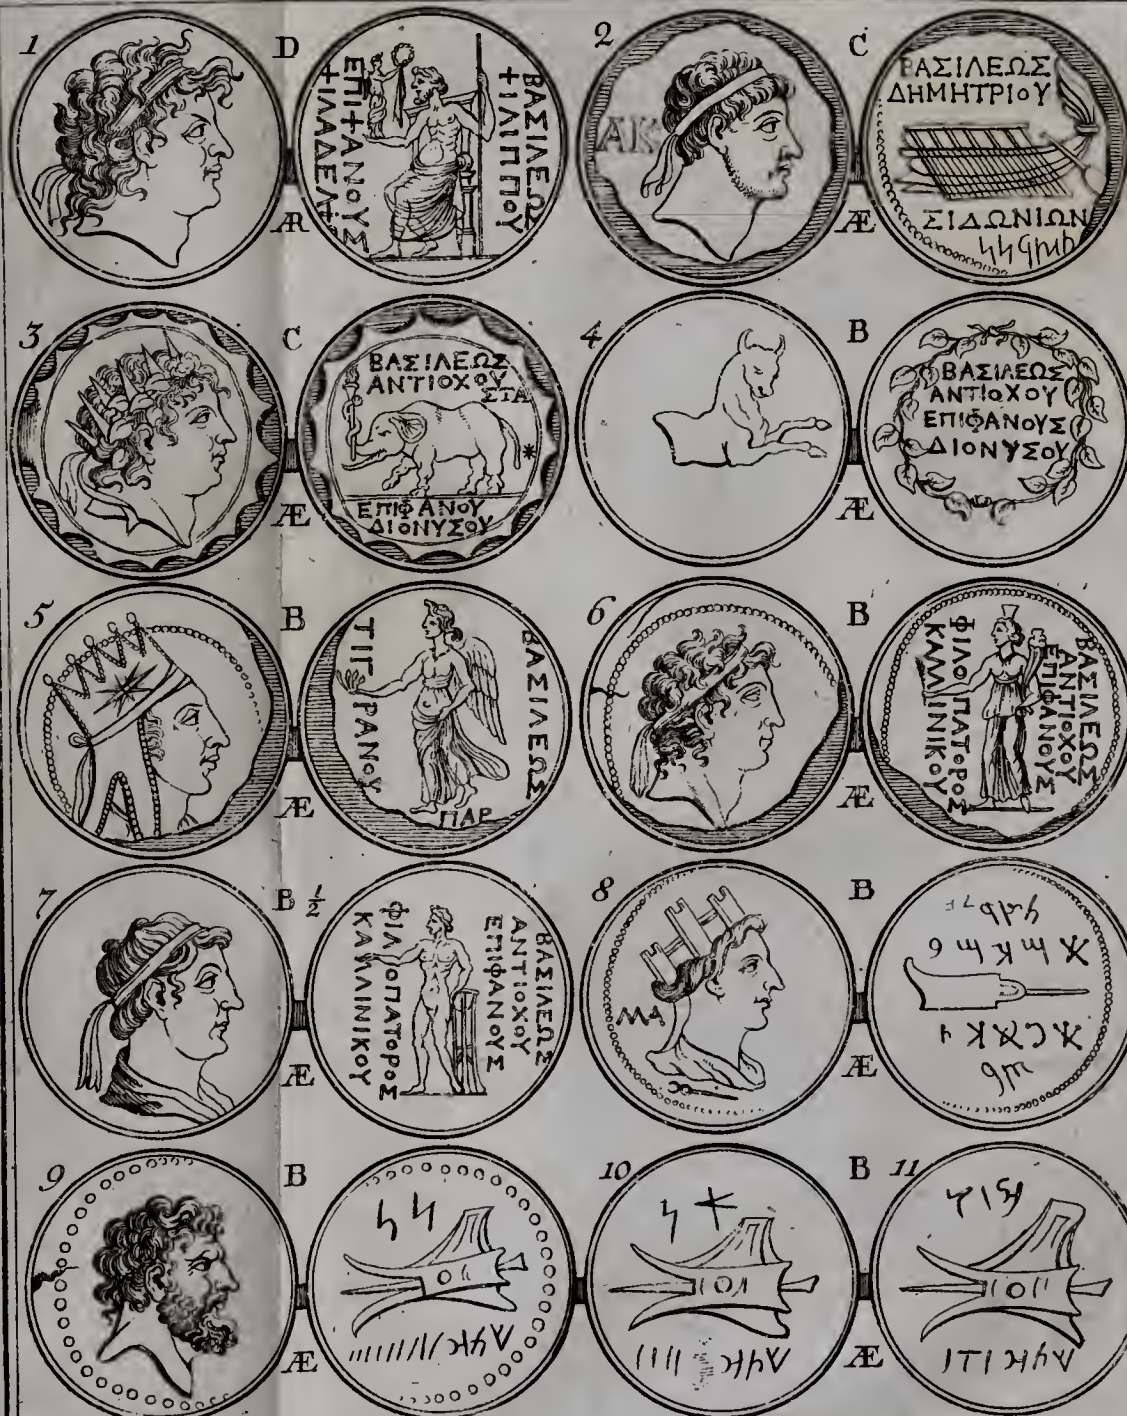 1
D
ΒΑΣΙΛΕΩΣ
ϮΙΛΙΠΠΟΥ
ΕΠΙϮΑΝΟΥΣ
ϮΙΛΑΔΕΛϮ
ÆR
2
C
ΑΚ
ΒΑΣΙΛΕΩΣ
ΔΗΜΗΤΡΙΟΥ
ΣΙΔΩΝΙΩΝ
Æ
3
C
ΒΑΣΙΛΕΩΣ
ΑΝΤΙΟΧΟΥ
ΣΤΑ
ΕΠΙΦΑΝΟΥ
ΔΙΟΝΥΣΟΥ
Æ
4
B
ΒΑΣΙΛΕΩΣ
ΑΝΤΙΟΧΟΥ
ΕΠΙΦΑΝΟΥΣ
ΔΙΟΝΥΣΟΥ
Æ
5
B
ΒΑΣΙΛΕΩΣ
ΤΙΓΡΑΝΟΥ
ΠΑΡ
Æ
6
B
ΒΑΣΙΛΕΩΣ
ΑΝΤΙΟΧΟΥ
ΕΠΙΦΑΝΟΥΣ
ΦΙΛΟΠΑΤΟΡΟΣ
ΚΑΛΛΙΝΙΚΟΥ
Æ
7
B ½
ΒΑΣΙΛΕΩΣ
ΑΝΤΙΟΧΟΥ
ΕΠΙΦΑΝΟΥΣ
ΦΙΛΟΠΑΤΟΡΟΣ
ΚΑΛΛΙΝΙΚΟΥ
Æ
8
B
ΜΑ
Æ
9
B
Æ
10
B
Æ
11